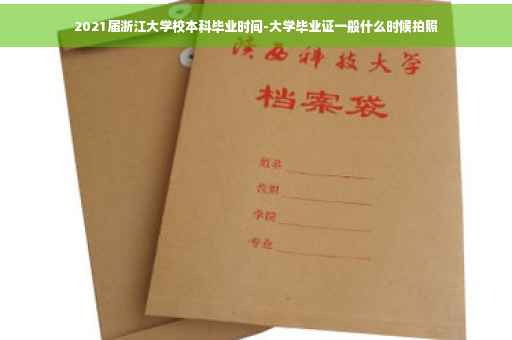 2021届浙江大学校本科毕业时间-大学毕业证一般什么时候拍照
陕西科技大学
档案袋
姓名
学院
专业